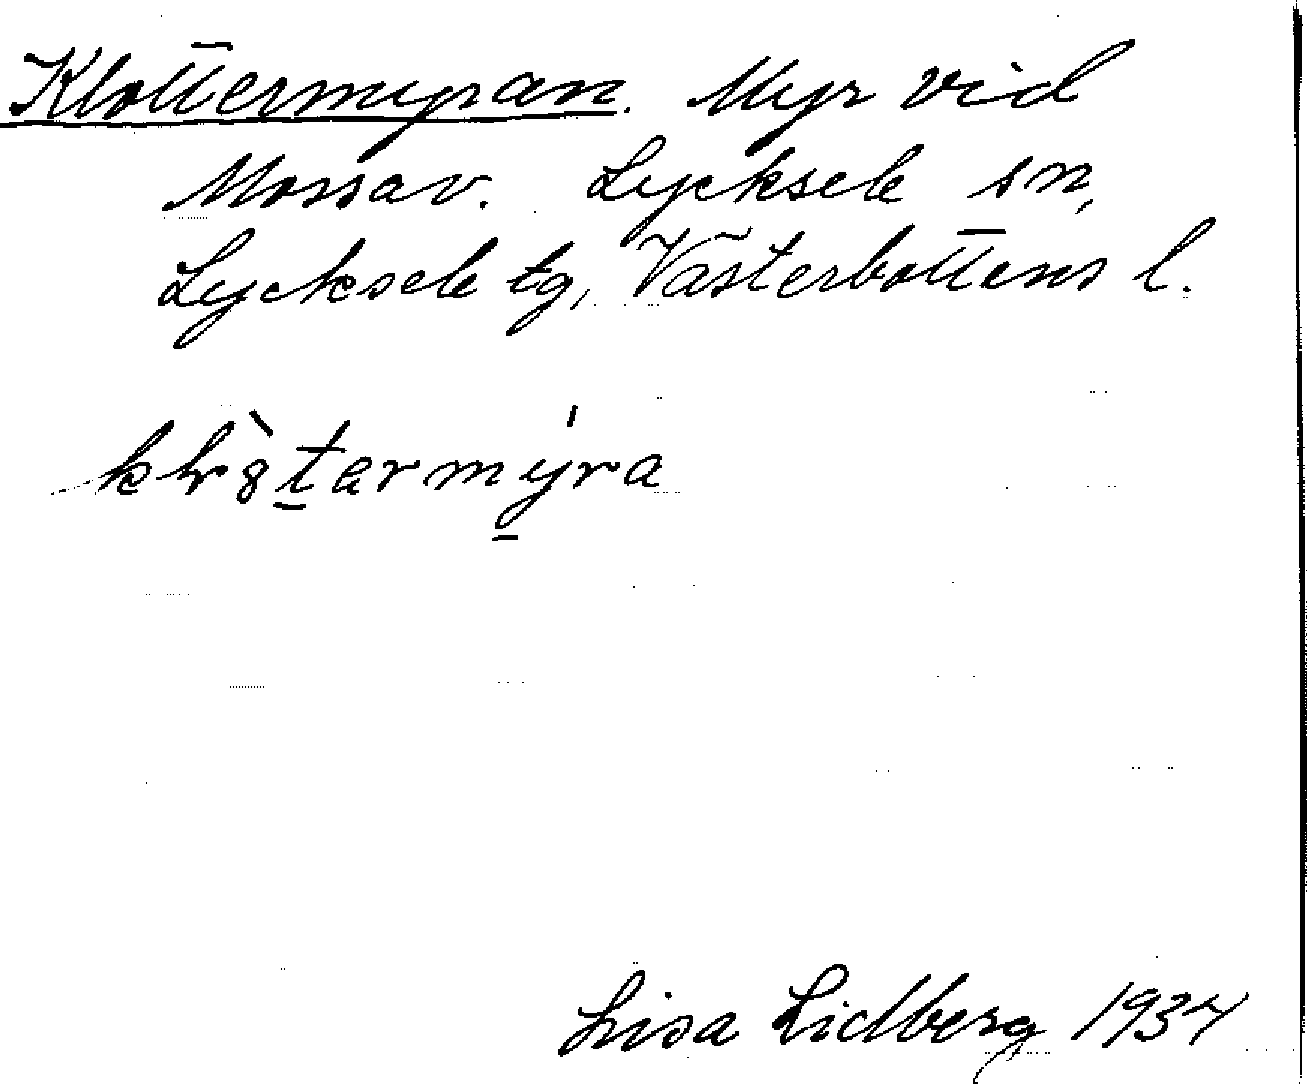 Klottermyran. Myr vid
Mossav. Lycksele sn,
Lycksele tg, Västerbottens l.
Lisa Lidberg 1934